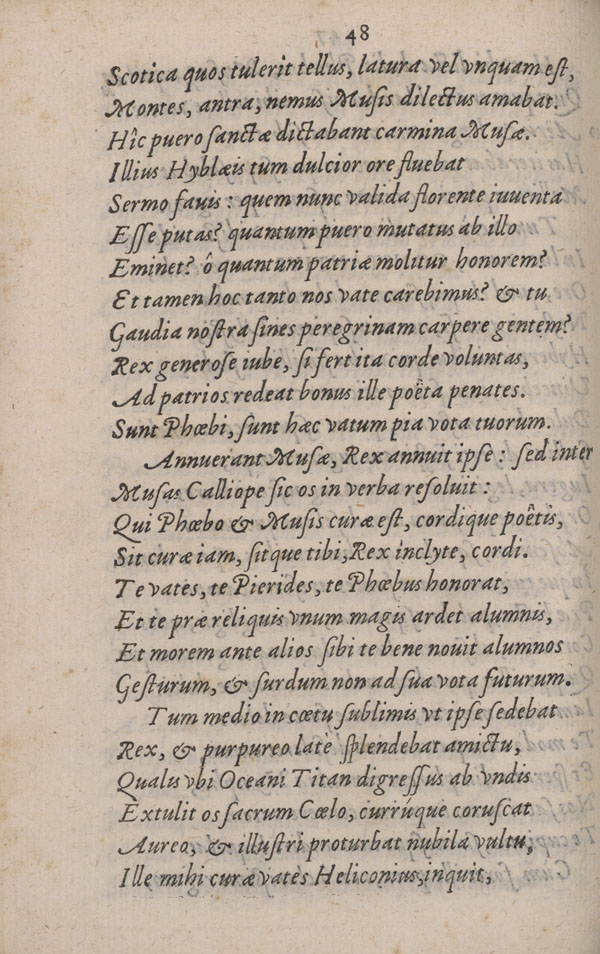 48
Scotica quos tulerit tellus, latura vel vnquam eſt,
Montes, antra, nemus Muſis dilectus amabat.
Hîc puero ſanctæ dictabant carmina Muſæ.
Illius Hyblæis tum dulcior ore fluebat
Sermo fauis: quem nunc valida florente iuuenta
Eſſe putas? quantum puero mutatus ab illo
Eminet? ô quantum patriæ molitur honorem?
Et tamen hoc tanto nos vate carebimus? & tu
Gaudia noſtra ſines peregrinam carpere gentem?
Rex generoſe iube, ſi fert ita corde voluntas,
Ad patrios redeat bonus ille poëta penates.
Sunt Phœbi, ſunt hæc vatum pia vota tuorum.
Annuerant Muſæ, Rex annuit ipſe: ſed inter
Muſas Calliope ſic os in verba reſoluit:
Qui Phœbo & Muſis curæ eſt, cordique poëtis,
Sit curæ iam, ſitque tibi, Rex inclyte, cordi.
Te vates, te Pierides, te Phœbus honorat,
Et te præ reliquis vnum magis ardet alumnis,
Et morem ante alios ſibi te bene nouit alumnos
Geſturum, & ſurdum non ad ſua vota futurum.
Tum medio in cœtu ſublimis vt ipſe ſedebat
Rex, & purpureo latè ſplendebat amictu,
Qualis vbi Oceani Titan digreſſus ab vndis
Extulit os ſacrum Cœlo, currúque coruſcat
Aureo, & illuſtri proturbat nubila vultu;
Ille mihi curæ vates Heliconius, inquit,